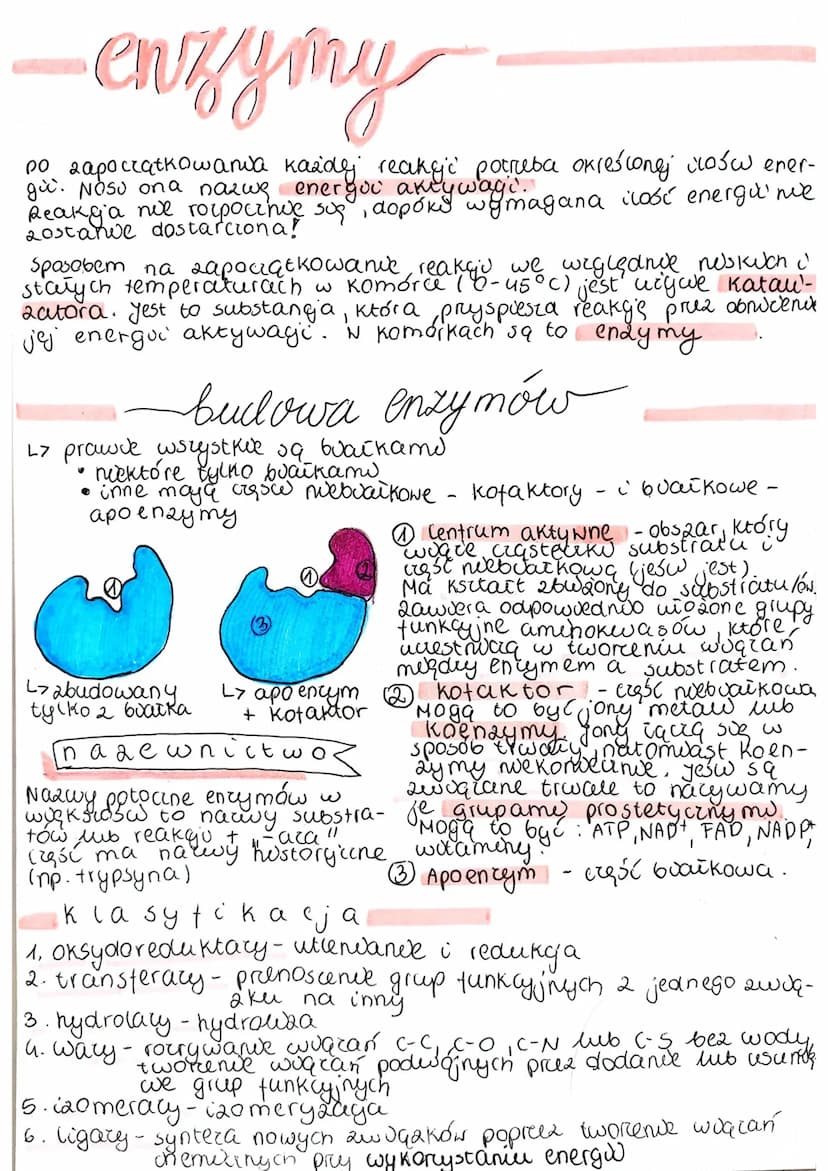 enzymy
Do zapoczątkowania każdej reakcji potrzeba określonej ilości ener-
gii. Nosi ona nazwę energii aktywacji.
Reakcja nie rozpocznie się, dopóki wymagana ilość energii nie
zostanie dostarczona!
Sposobem na zapoczątkowanie reakcji we względnie niskich i
stałych temperaturach w komórce (0-45°C) jest użycie katali-
zatora. Jest to substancja, która przyspiesza reakcję przez obniżenie
jej energii aktywacji. W komórkach są to enzymy.
budowa enzymów
↳ prawie wszystkie są białkami
• niektóre tylko białkami
• inne mają części niebiałkowe - kofaktory - i białkowe -
apoenzymy
1
1
2
3
↳ zbudowany
tylko z białka
↳ apoenzym
+ kofaktor
① Centrum aktywne - obszar, który
wiąże cząsteczki substratu i
część niebiałkową (jeśli jest).
Ma kształt zbliżony do substratu/ów.
Zawiera odpowiednio ułożone grupy
funkcyjne aminokwasów, które
uczestniczą w tworzeniu wiązań
między enzymem a substratem.
② Kofaktor - część niebiałkowa
Mogą to być jony metali lub
koenzymy. Jony łączą się w
sposób trwały, natomiast koen-
zymy niekoniecznie. Jeśli są
związane trwale to nazywamy
je grupami prostetycznymi.
Mogą to być: ATP, NAD⁺, FAD, NADP⁺,
witaminy.
③ Apoenzym - część białkowa.
nazewnictwo
Nazwy potoczne enzymów w
większości to nazwy substra-
tów lub reakcji + "-aza"
Część ma nazwy historyczne
(np. trypsyna)
klasyfikacja
1. oksydoreduktazy - utlenianie i redukcja
2. transferazy - przenoszenie grup funkcyjnych z jednego zwią-
zku na inny
3. hydrolazy - hydroliza
4. liazy - rozrywanie wiązań C-C, C-O, C-N lub C-S bez wody,
tworzenie wiązań podwójnych przez dodanie lub usunię
cie grup funkcyjnych
5. izomerazy - izomeryzacja
6. ligazy - synteza nowych związków poprzez tworzenie wiązań
chemicznych przy wykorzystaniu energii